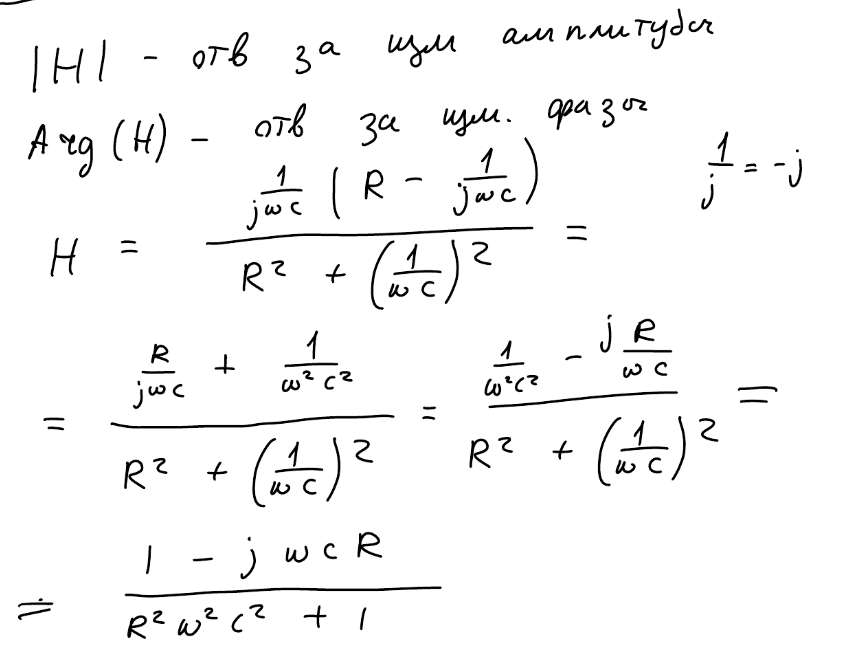 |H| - отв за изм амплитуды
Arg (H) - отв за изм. фазы
1/j = -j
H = (1/(jωc) (R - 1/(jωc))) / (R² + (1/(ωc))²) =
= (R/(jωc) + 1/(ω²c²)) / (R² + (1/(ωc))²) = (1/(ω²c²) - j R/(ωc)) / (R² + (1/(ωc))²) =
= (1 - jωcR) / (R²ω²c² + 1)